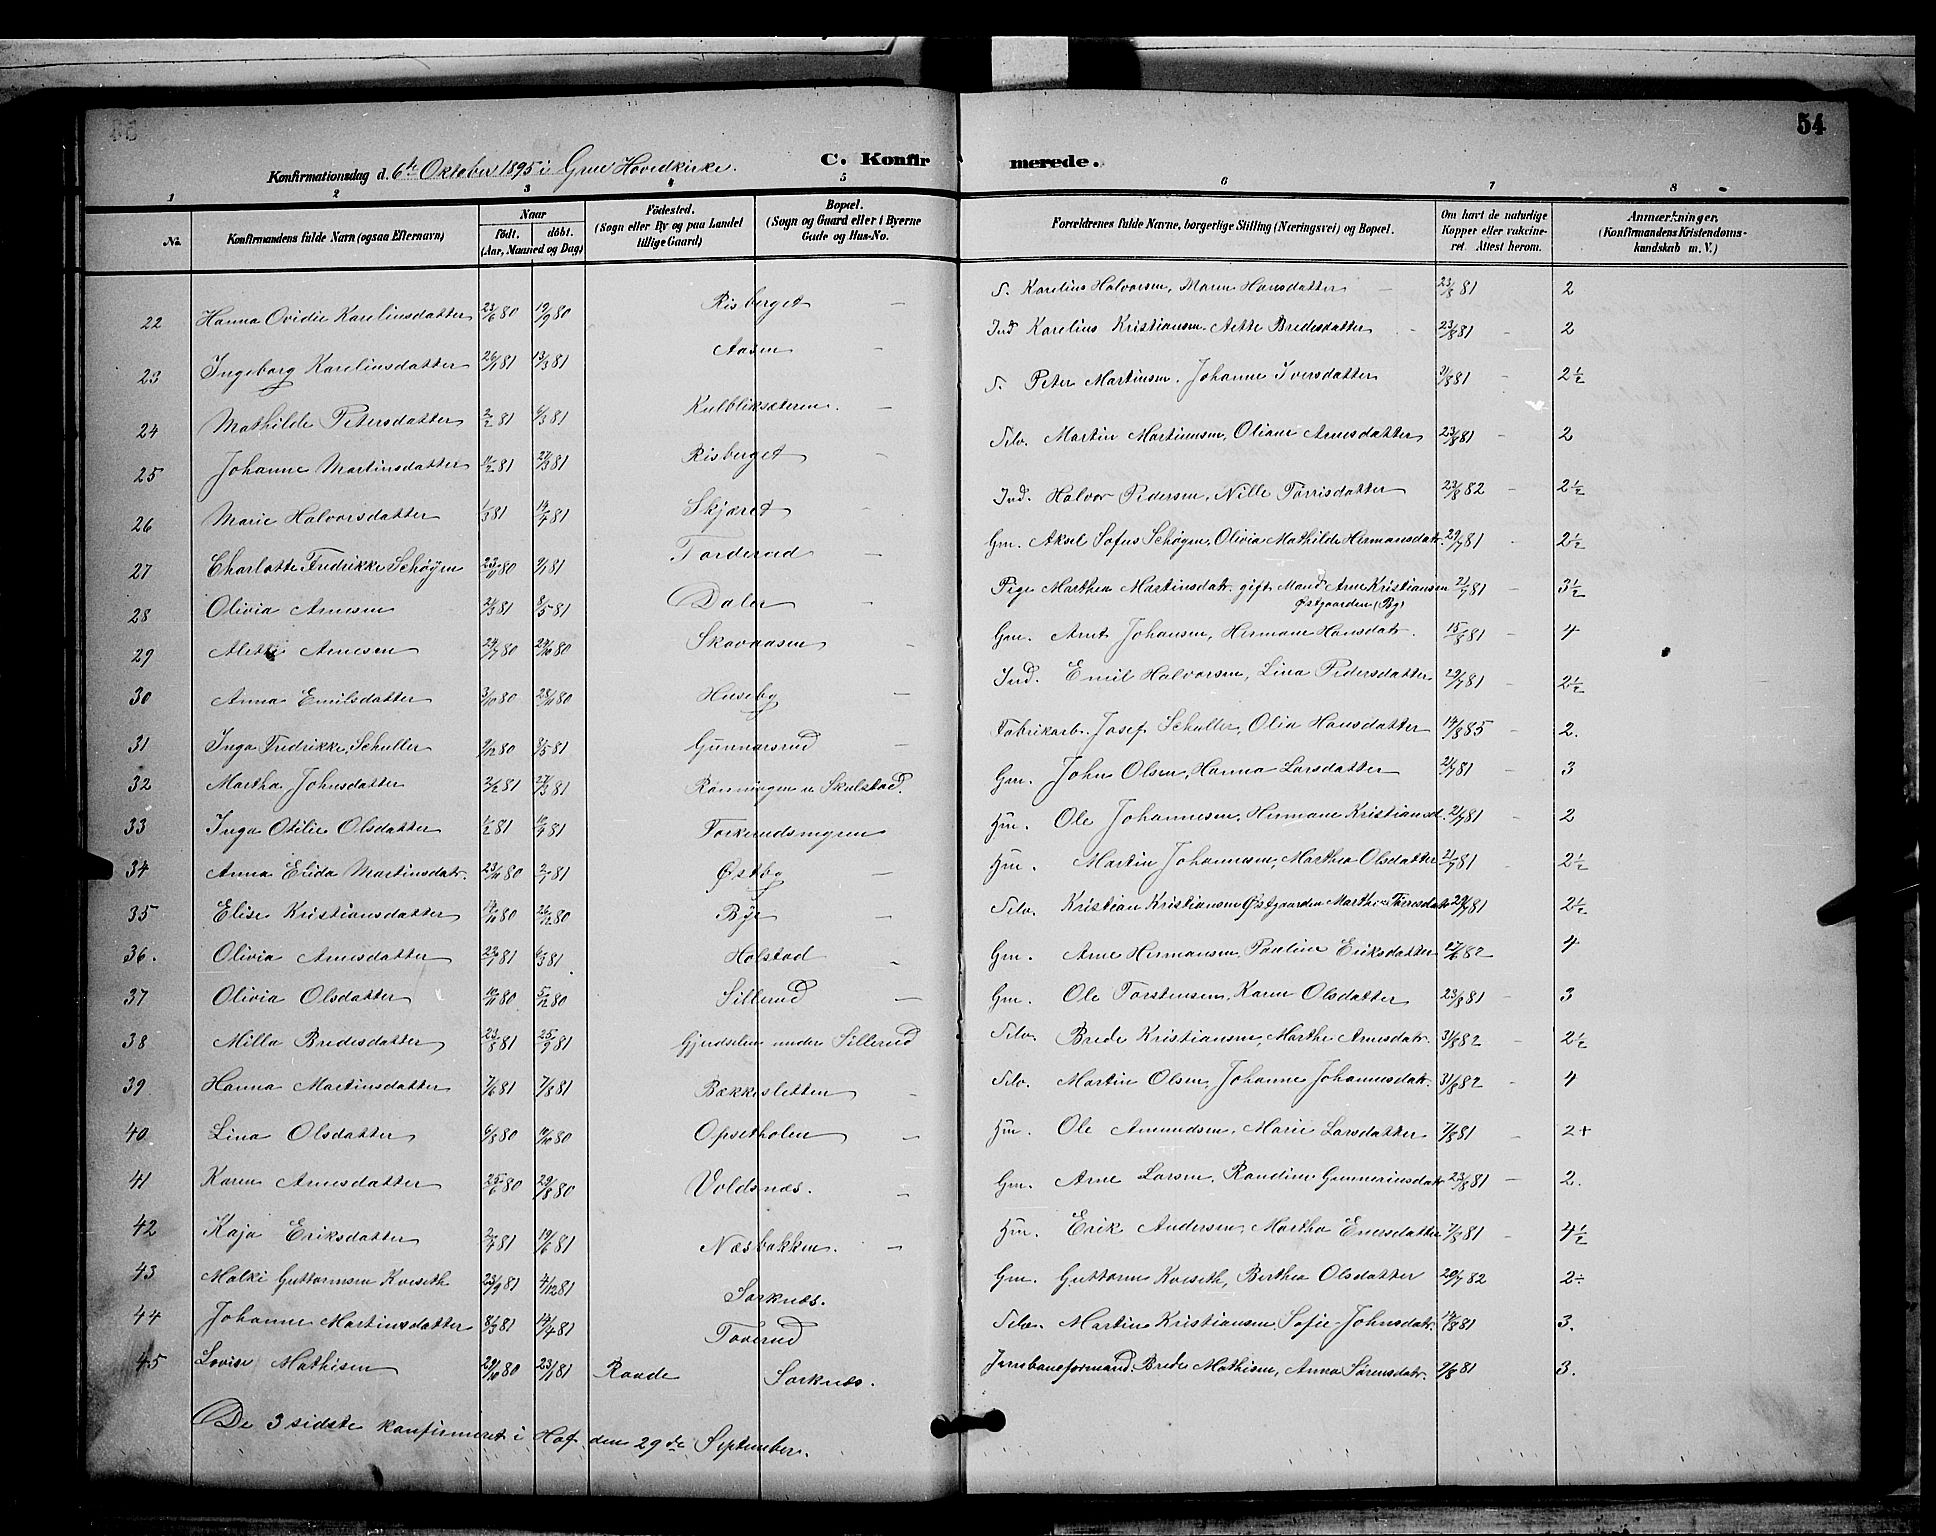 54
C. Konfirmerede.
Konfirmationsdag d. 6te Oktober 1895 i Grue Hovedkirke.
1 2 3 4 5 6 7 8
No. Konfirmandens fulde Navn (ogsaa Efternavn) Naar født. døbt. (Aar, Maaned og Dag) Födested. (Sogn eller By og paa Landet tillige Gaard) Bopæl. (Sogn og Gaard eller i Byerne Gade og Hus-No. Forældrenes fulde Navne, borgerlige Stilling (Næringsvei) og Bopæl. Om havt de naturlige Kopper eller vakcineret. Attest herom. Anmærkninger. (Konfirmandens Kristendomskundskab m. V.)
22 Hanna Ovidie Kareliusdatter 23/6 80 19/9 80 Risberget — S. Karelius Halvorsen, Maren Hansdatter 23/8 81 2
23 Ingeborg Kareliusdatter 26/1 81 13/3 81 Aasen — Ind Karelius Kristiansen, Aette Bredesdatter 23/8 81 2
24 Mathilde Petersdatter 2/2 81 6/3 81 Kulbliksæteren. — S. Peter Martinsen, Johanne Iversdatter 81 2½
25 Johanne Martinsdatter 11/2 81 27/3 81 Risberget — Selv. Martin Martinsen, Oliane Arnesdatter 23/8 81 2
26 Marie Halvorsdatter 1/3 81 81 Skjæret — Ind. Halvor Pedersen, Nille Torrisdatter 23/8 82 2½
27 Charlotte Fredrikke Schøyen 23/11 80 81 Torderud — Gm. Aksel Sofus Schøyen, Olivia Mathilde Hermansdatr. 29/7 81 2½
28 Olivia Arnesen 81 8/5 81 Daler — Pige Marthea Martinsdatr. gift Mand Arne Kristiansen Østgaarden (By) 21/7 81 3½
29 Alette Arnesen 80 80 Skavaasen — Gm. Arnt Johansen, Hermane Hansdatr. 15/8 81 4
30 Anna Emilsdatter 3/10 80 28/11 80 Huseby — Ind. Emil Halvorsen, Lina Pedersdatter 29/7 81 2½
31 Inga Fredrikke Schuller 9/12 80 8/5 81 Gunnarsrud — Fabrikarb. Josef Schuller, Olia Hansdatter 14/8 85 2.
32 Martha Johnsdatter 2/2 81 27/3 81 Rønningen u. Skulstad. Gm. John Olsen, Hanna Larsdatter 21/7 81 3
33 Inga Otilie Olsdatter 1/2 81 81 Torkerudsmyren Hm. Ole Johannesen, Hermane Kristiansd. 21/7 81 2
34 Anna Elida Martinsdatr. 23/11 80 2/1 81 Østby — Hm. Martin Johannesen, Marthea Olsdatter 21/7 81 2½
35 Elise Kristiansdatter 80 26/12 80 Bye — Selv. Kristian Kristiansen Østgaarden Marthe Iversdatr 29/7 81 2½
36. Olivia Arnesdatter 23/1 81 6/3 81 Holstad Gm. Arne Hermansen, Pauline Eriksdatter 82 4
37 Olivia Olsdatter 80 5/12 80 Sillerud — Gm. Ole Torstensen, Karen Olsdatter 23/8 81 3
38 Milla Bredesdatter 23/8 81 25/9 81 Gjerdselen under Sillerud Selv. Brede Kristiansen, Marthe Arnesdatr. 31/8 82 2½
39 Hanna Martinsdatter 7/6 81 7/8 81 Bækkesletten Selv. Martin Olsen, Johanne Johannesdatr. 31/8 82 4
40 Lina Olsdatter 6/8 80 80 Opsetholen Hm. Ole Amundsen, Marie Larsdatter 7/8 81 2+
41 Karen Arnesdatter 25/6 80 29/8 80 Voldsnæs. — Gm. Arne Larsen, Randine Gunneriusdatr 23/8 81 2.
42 Kaja Eriksdatter 81 19/6 81 Næsbakken. — Hm. Erik Andersen, Martha Enersdatter 7/8 81 4½
43 Malki Guttormsen Kveseth 23/9 81 4/12 81 Sorknæs. Gm. Guttorm Kveseth, Berthea Olsdatter 20/7 82 2÷
44 Johanne Martinsdatter 8/3 81 14/4 81 Toverud Selv. Martin Kristiansen, Sofie Johnsdatr. 81 3.
45 Lovise Mathisen 29/10 80 23/1 81 Raade Sorknæs. Jernbaneformand. Brede Mathisen, Anna Sörensdatr. 2/8 81 3.
De 3 sidste konfirmeret i Hof den 29de September.